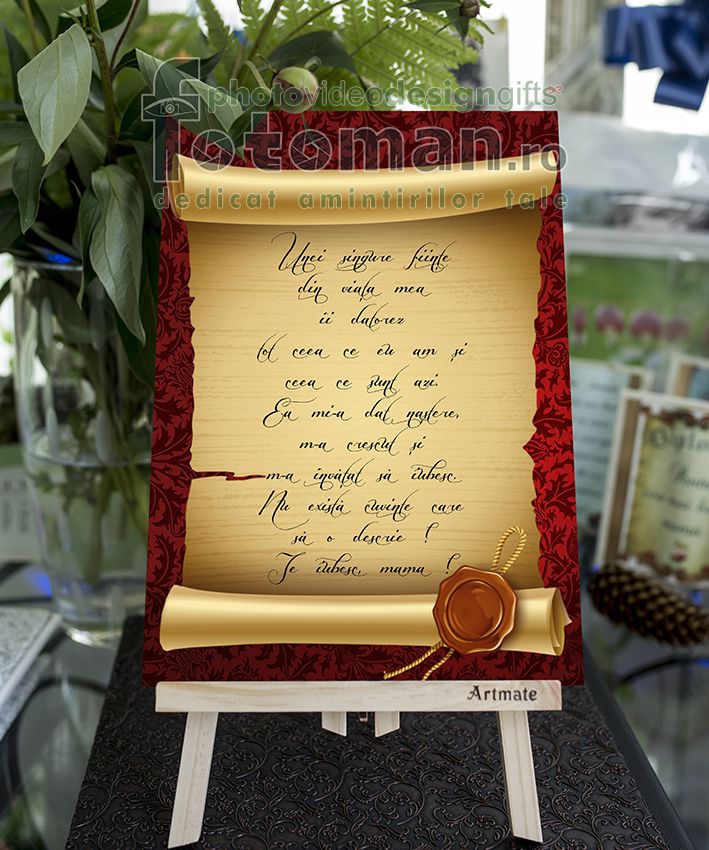 photovideodesigngifts
fotoman.ro
dedicat amintirilor tale
Unei singure ființe
din viața mea
îi datorez
tot ceea ce eu am și
ceea ce sunt azi.
Ea mi-a dat naștere,
m-a crescut și
m-a învățat să iubesc.
Nu există cuvinte care
să o descrie !
Te iubesc, mama !
Artmate